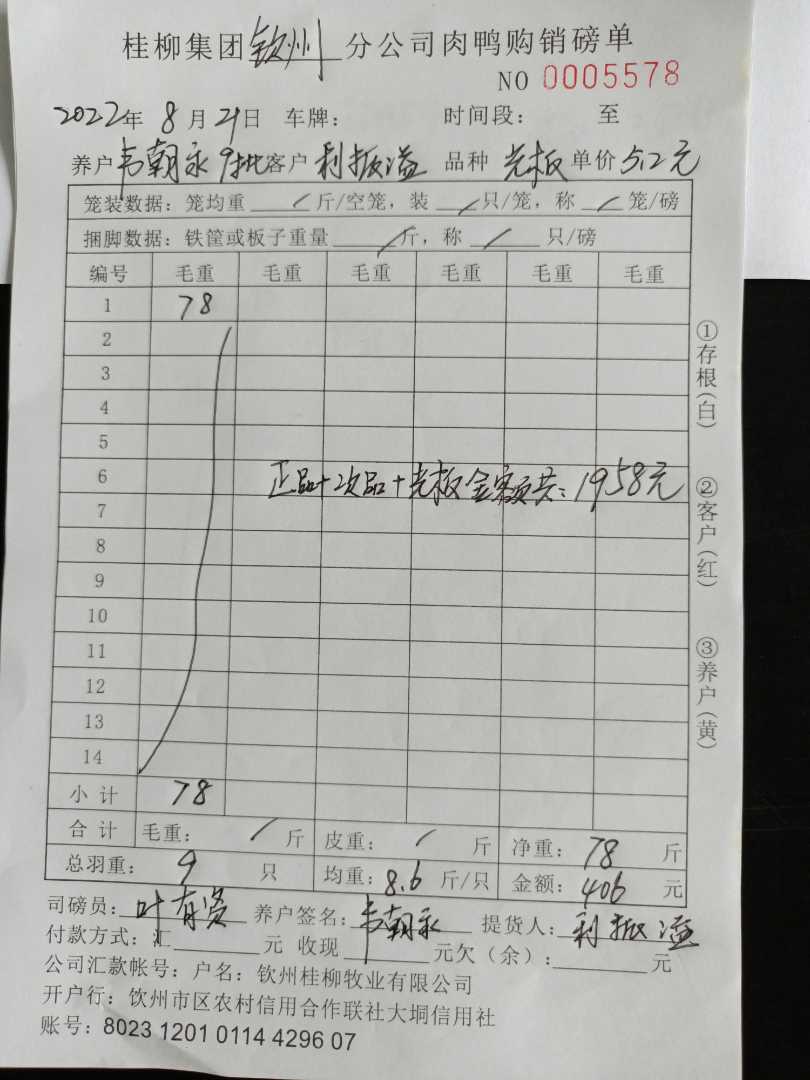 桂柳集团钦州分公司肉鸭购销磅单
NO 0005578
2022年 8月21日 车牌: 时间段: 至
养户韦朝永9批客户利振溢 品种 光板 单价5.2元
笼装数据: 笼均重 / 斤/空笼, 装 / 只/笼, 称 / 笼/磅
捆脚数据: 铁筐或板子重量 / 斤, 称 / 只/磅
编号 毛重 毛重 毛重 毛重 毛重 毛重
1 78
2
3
4
5
6
正品+次品+光板金额共: 1958元
7
8
9
10
11
12
13
14
小计 78
合计 毛重: / 斤 皮重: / 斤 净重: 78 斤
总羽重: 9 只 均重: 8.6 斤/只 金额: 406 元
司磅员: 叶有 养户签名: 韦朝永 提货人: 利振溢
付款方式: 汇 元 收现 元欠(余): 元
公司汇款帐号: 户名: 钦州桂柳牧业有限公司
开户行: 钦州市区农村信用合作联社大垌信用社
账号: 8023 1201 0114 4296 07
①存根(白)
②客户(红)
③养户(黄)